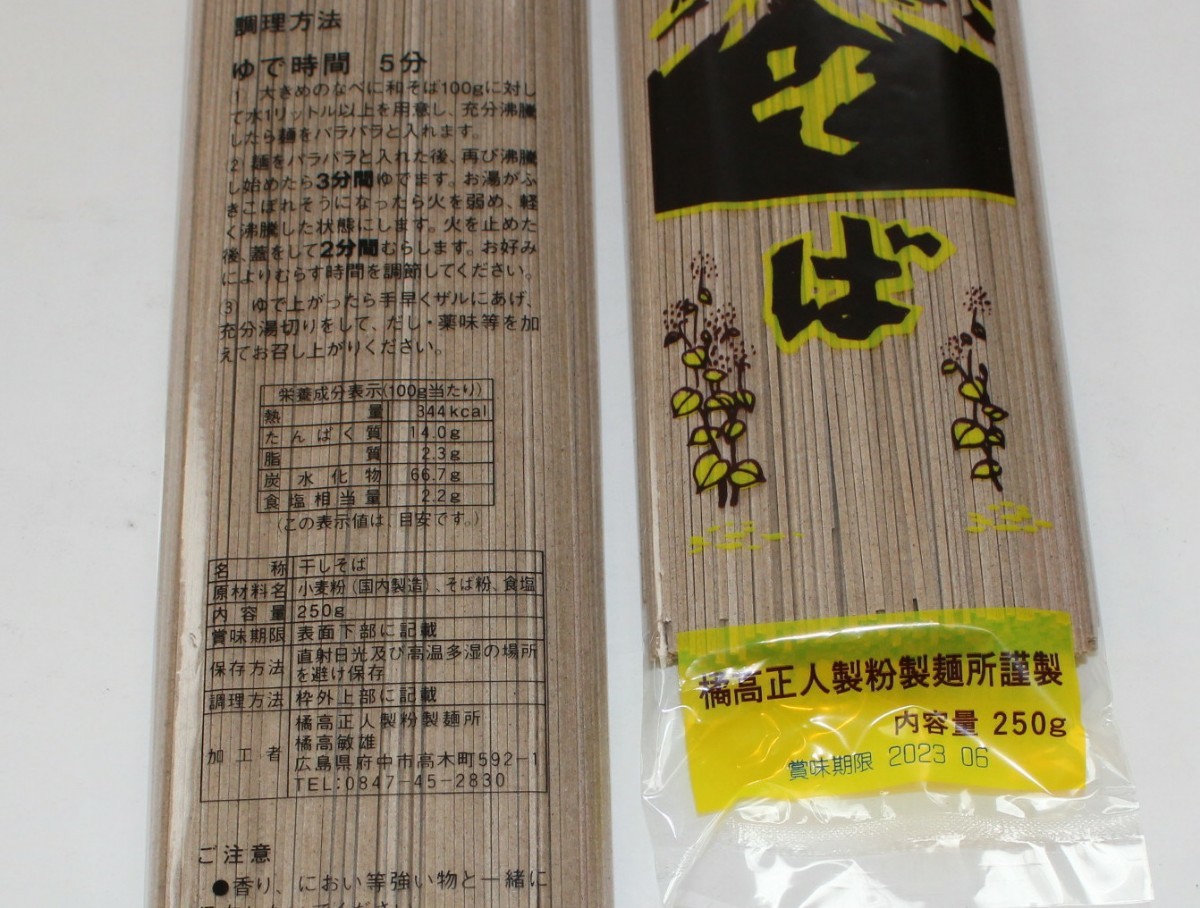 調理方法
ゆで時間 5分
1 大きめのなべに和そば100gに対し
て水1リットル以上を用意し、充分沸騰
したら麺をバラバラと入れます。
(2) 麺をバラバラと入れた後、再び沸騰
し始めたら3分間ゆでます。お湯がふ
きこぼれそうになったら火を弱め、軽
く沸騰した状態にします。火を止めた
後、蓋をして2分間むらします。お好み
によりむらす時間を調節してください。
(3) ゆで上がったら手早くザルにあげ、
充分湯切りをして、だし・薬味等を加
えてお召し上がりください。
栄養成分表示(100g当たり)
熱量 344kcal
たんぱく質 14.0g
脂質 2.3g
炭水化物 66.7g
食塩相当量 2.2g
(この表示値は、目安です。)
名称 干しそば
原材料名 小麦粉(国内製造)、そば粉、食塩
内容量 250g
賞味期限 表面下部に記載
保存方法 直射日光及び高温多湿の場所
を避け保存
調理方法 枠外上部に記載
加工者 橘高正人製粉製麺所
橘高敏雄
広島県府中市高木町592-1
TEL:0847-45-2830
ご注意
●香り、におい等強い物と一緒に
そば
橘高正人製粉製麺所謹製
内容量 250g
賞味期限 2023 06